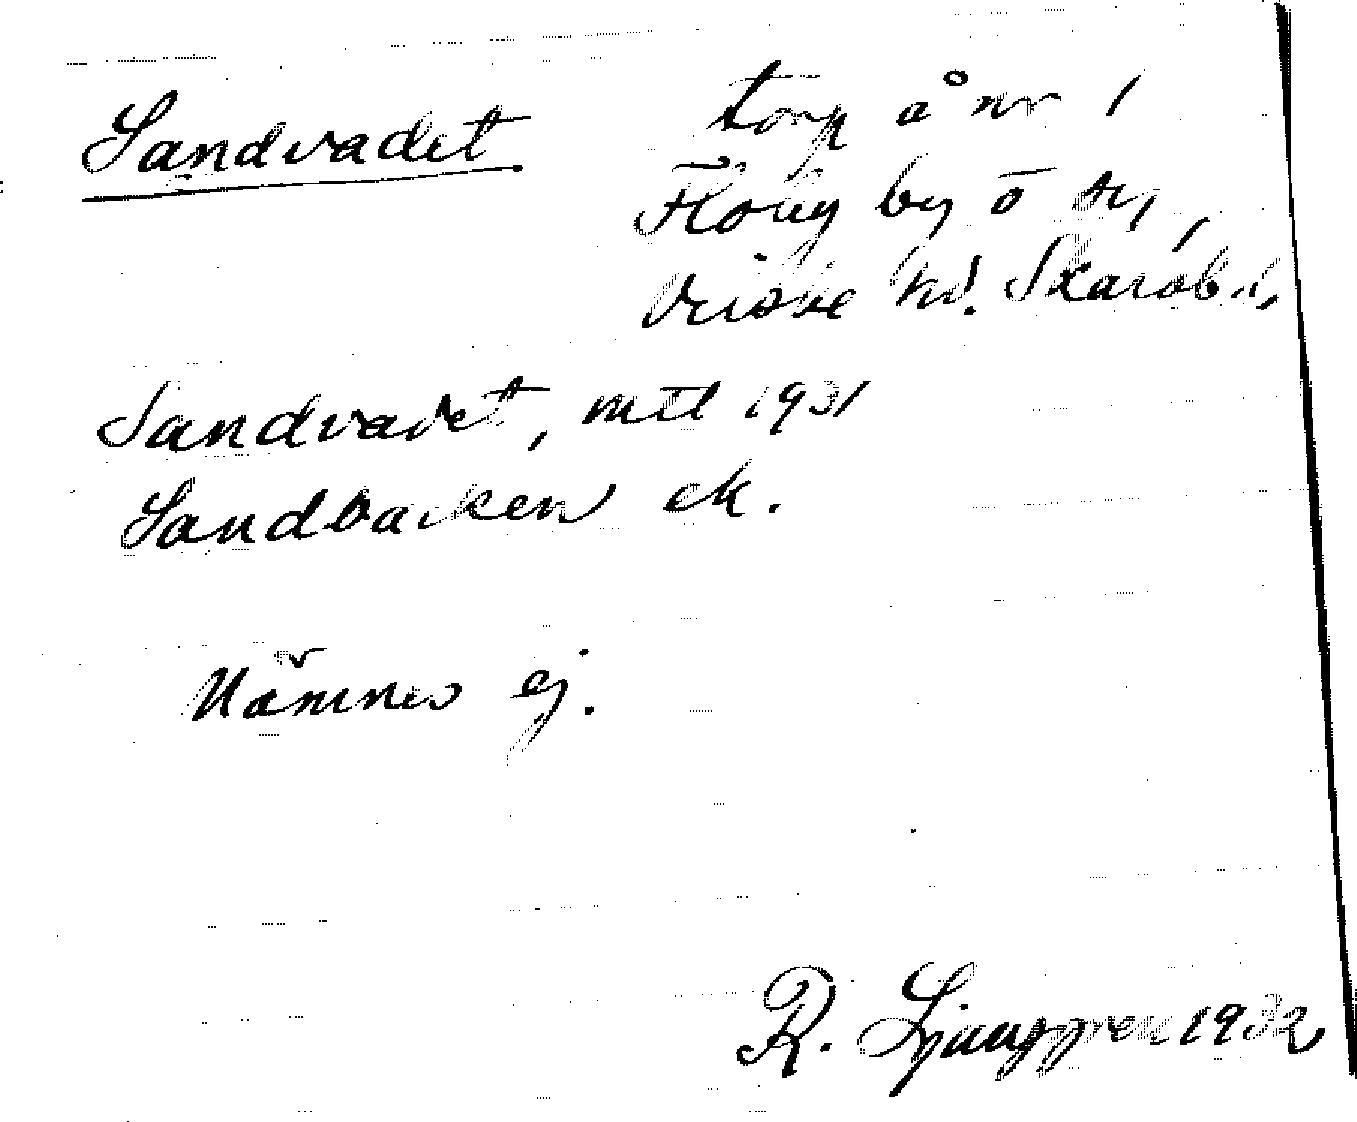 Sandvadet
torp å nr 1
Floby by o sn,
Vilske hd. Skarab.l.
Sandvadet, mtl 1931
Sandbacken ek.
Nämnes ej.
R. Ljunggren 1932